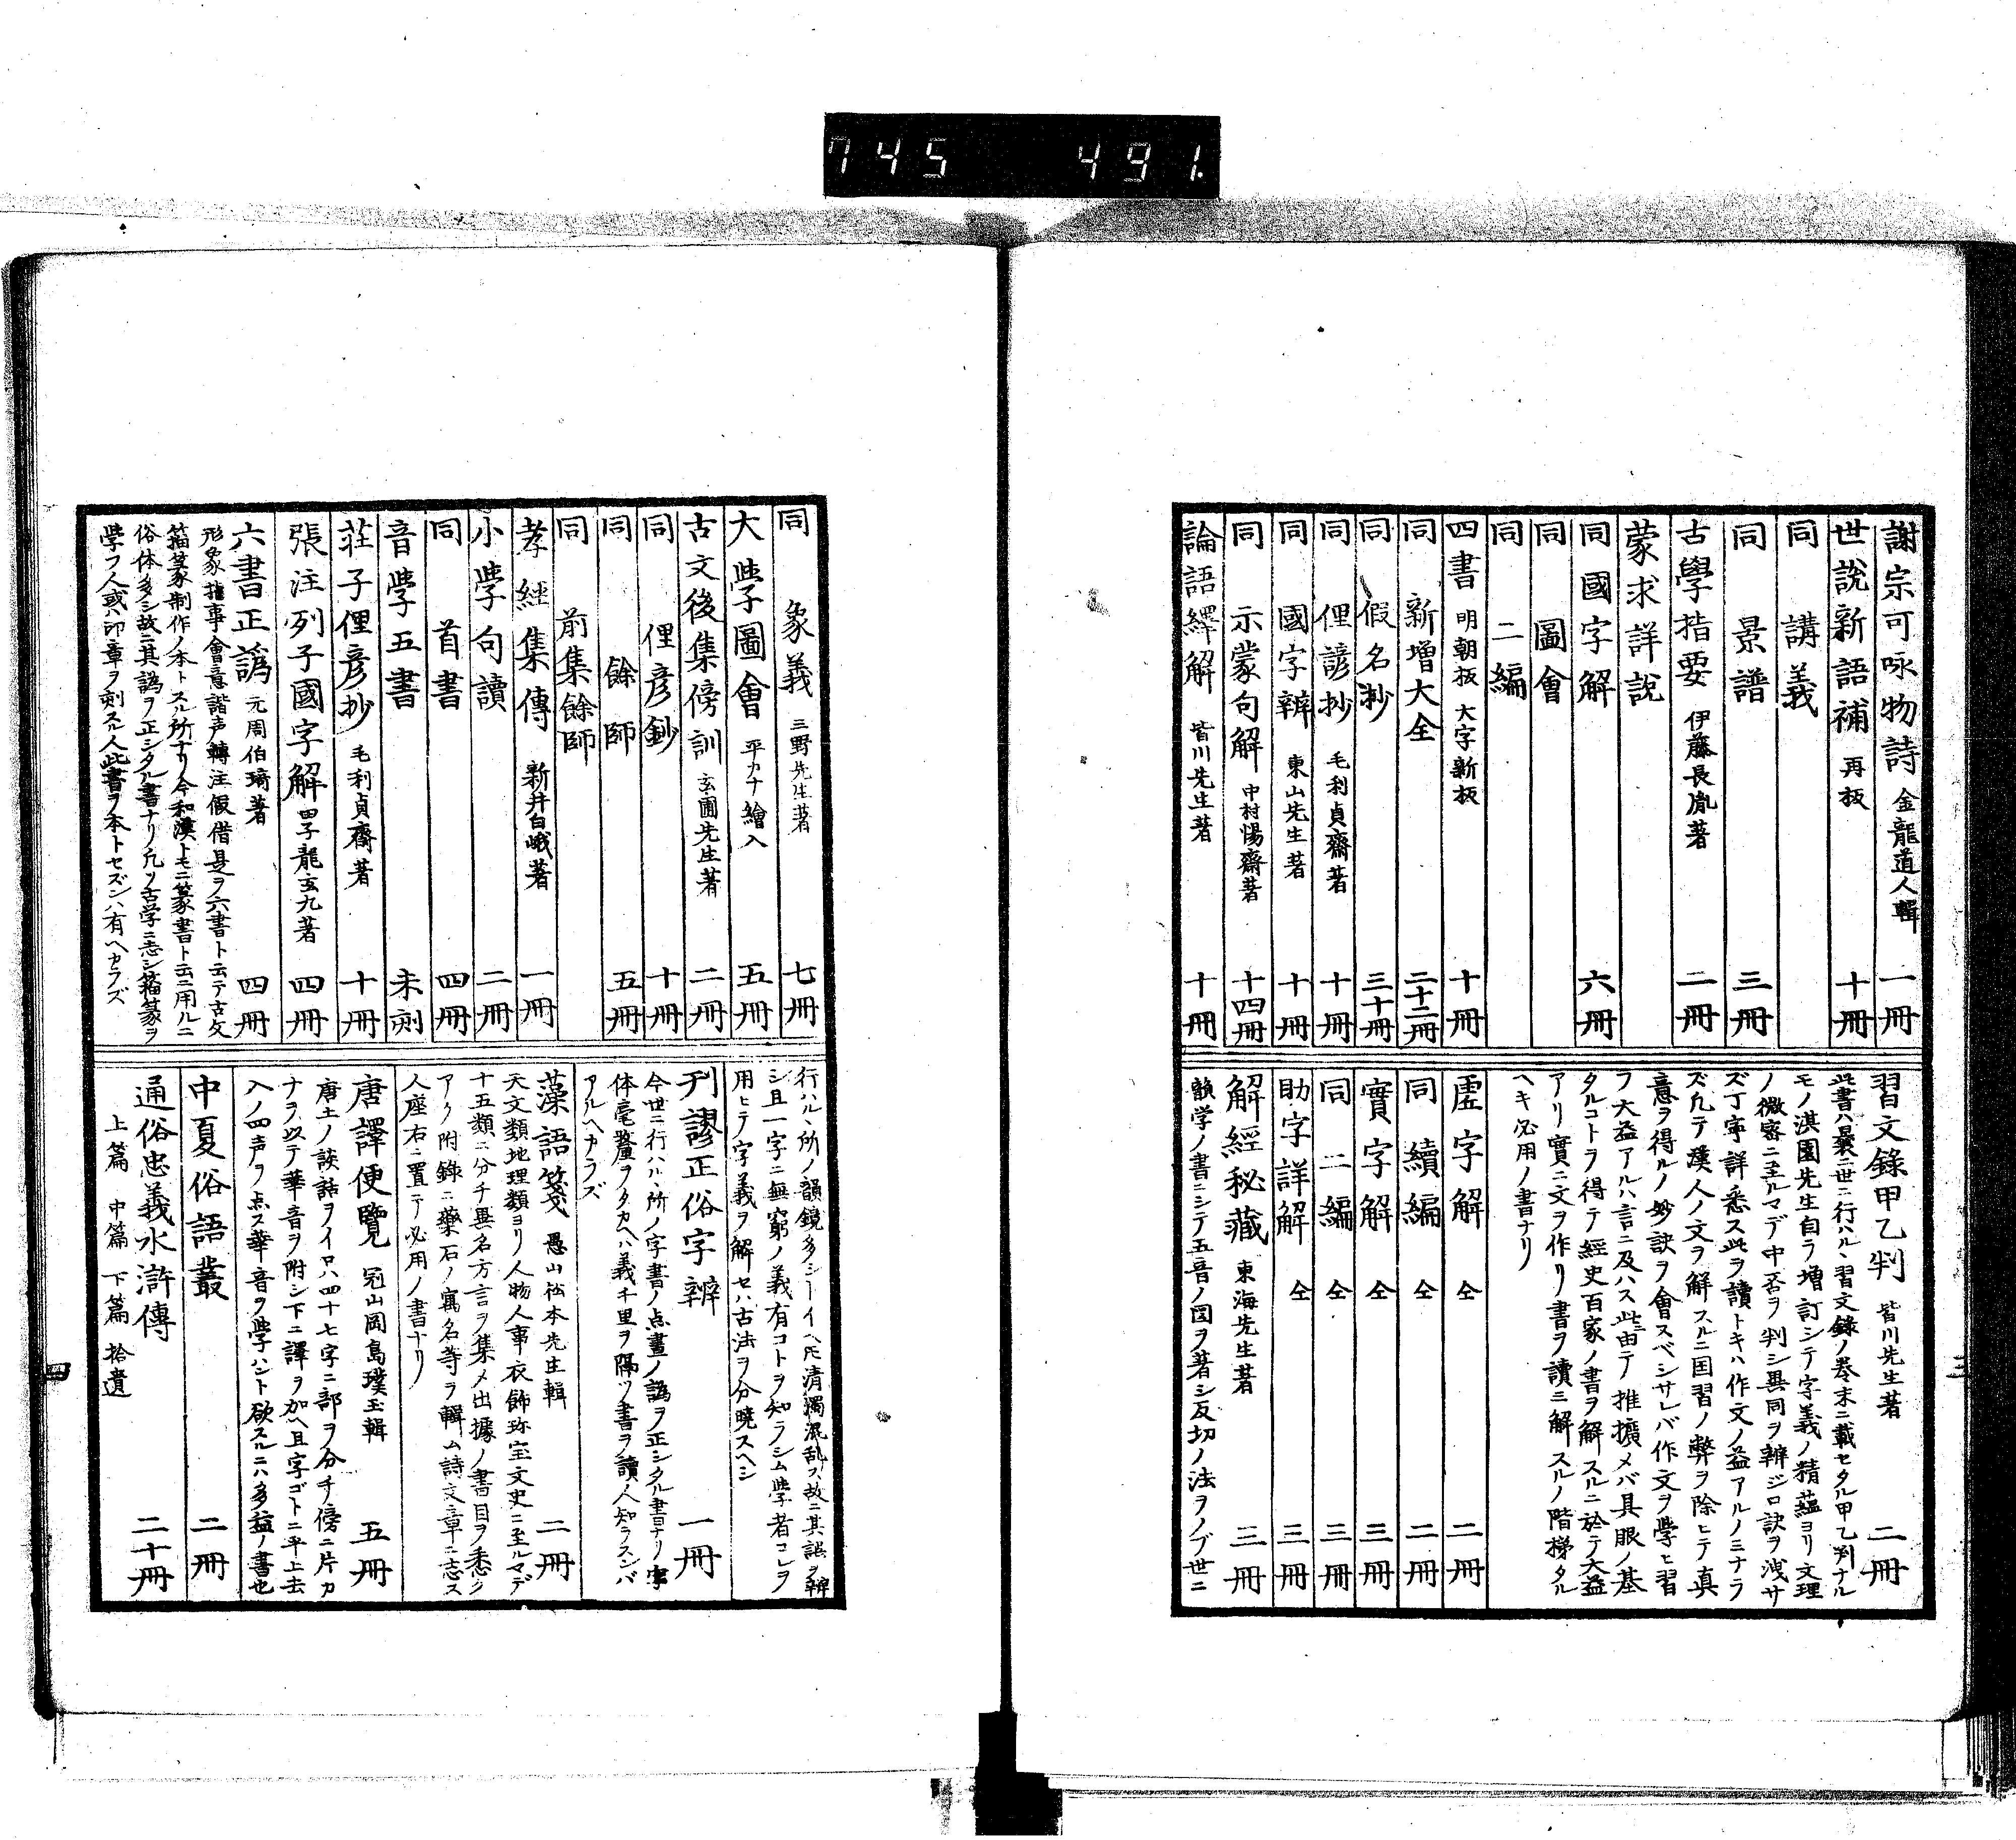 745 491.
謝宗可咏物詩 金龍道人輯 一冊
世説新語補 再板 十冊
同 講義
同 景譜 三冊
古學指要 伊藤長胤著 二冊
蒙求詳説
同 國字解 六冊
同 圖會
同 二編
四書 明朝板 大字新板 十冊
同 新增大全 二十二冊
同 假名抄 三十冊
同 俚諺抄 毛利貞齋著 十冊
同 國字辨 東山先生著 十冊
同 示蒙句解 中村惕齋著 十四冊
論語繹解 皆川先生著 十冊
習文錄甲乙判 皆川先生著 二冊
此書ハ曩ニ世ニ行ハルヽ習文錄ノ巻末ニ載セタル甲乙判ナル
モノ淇園先生自ラ增訂シテ字義ノ精蘊ヨリ文理
ノ微密ニ至ルマデ中否ヲ判シ異同ヲ辨ジ口訣ヲ洩サ
ズ丁寧詳悉ス此ヲ讀トキハ作文ノ益アルノミナラ
ズ凡テ漢人ノ文ヲ解スルニ国習ノ弊ヲ除ヒテ真
意ヲ得ルノ妙訣ヲ會スベシサレバ作文ヲ學ヒ習
フ大益アルハ言ニ及ハス此由テ推擴メバ具眼ノ基
タルコトヲ得テ經史百家ノ書ヲ解スルニ於テ大益
アリ實ニ文ヲ作リ書ヲ讀ミ解スルノ階梯タル
ヘキ必用ノ書ナリ
虚字解 仝 二冊
同 續編 仝 二冊
實字解 仝 三冊
同 二編 仝 三冊
助字詳解 仝 三冊
解經秘藏 東海先生著 三冊
韻学ノ書ニシテ五音ノ図ヲ著シ反切ノ法ヲノブ世ニ
三
同 象義 三野先生著 七冊
大學圖會 平カナ繪入 五冊
古文後集傍訓 玄圃先生著 二冊
同 俚彦鈔 十冊
同 餘師 五冊
同 前集餘師
孝經集傳 新井白峨著 一冊
小學句讀 二冊
同 首書 四冊
音學五書 未刻
莊子俚彦抄 毛利貞齋著 十冊
張注列子國字解 田子龍玄九著 四冊
六書正譌 元周伯琦著 四冊
形象指事會意諧声轉注假借是ヲ六書ト云テ古文
籀篆制作ノ本トスル所ナリ今和漢トモニ篆書ト云ニ用ルニ
俗体多シ故ニ其譌ヲ正シタル書ナリ凡ソ古学ニ志シ籀篆ヲ
學フ人或ハ印章ヲ刻スル人此書ヲ本トセズンハ有ヘカラズ
行ハルヽ所ノ韻鏡多シトイヘ𪜈清濁混乱ス故ニ其誤ヲ辨
シ且一字ニ無窮ノ義有コトヲ知ラシム學者コレヲ
用ヒテ字義ヲ解セハ古法ヲ分曉スヘシ
刋謬正俗字辨 一冊
今世ニ行ハルヽ所ノ字書ノ点畫ノ譌ヲ正シタル書ナリ字
体毫釐ヲタカヘハ義千里ヲ隔ツ書ヲ讀ノ人知ラスンバ
アルヘカラズ
藻語箋 愚山松本先生輯 二冊
天文類地理類ヨリ人物人事衣飾珍宝文史ニ至ルマデ
十五類ニ分チ異名方言ヲ集メ出據ノ書目ヲ悉ク
アク附錄ニ藥石ノ寓名等ヲ輯ム詩文章ニ志ス
人座右ニ置テ必用ノ書ナリ
唐譯便覽 冠山岡島璞玉輯 五冊
唐土ノ談話ヲイロハ四十七字ニ部ヲ分チ傍ニ片カ
ナヲ以テ華音ヲ附シ下ニ譯ヲ加ヘ且字ゴトニ平上去
入ノ四声ヲ点ス華音ヲ學ハント欲スルニハ多益ノ書也
中夏俗語叢 二冊
通俗忠義水滸傳 二十冊
上篇 中篇 下篇 拾遺
四